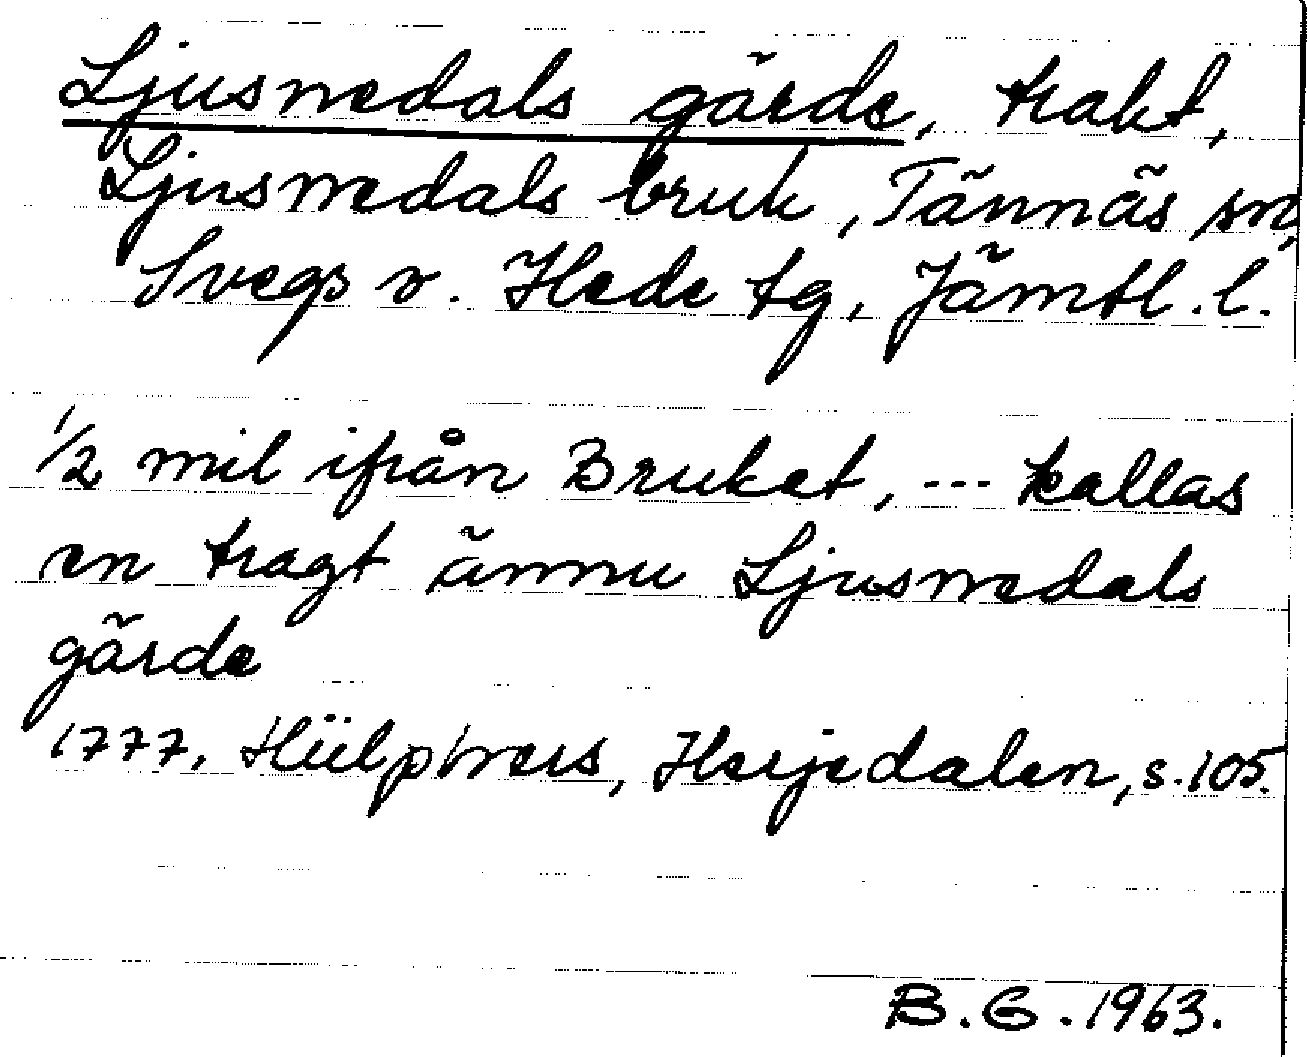 Ljusnedals gärde, trakt,
Ljusnedals bruk, Tännäs sn,
Svegs o. Hede tg, Jämtl. l.
1/2 mil ifrån Bruket, --- kallas
en tragt ännu Ljusnedals
gärde
1777. Hülphers, Herjedalen, s. 105.
B.G. 1963.